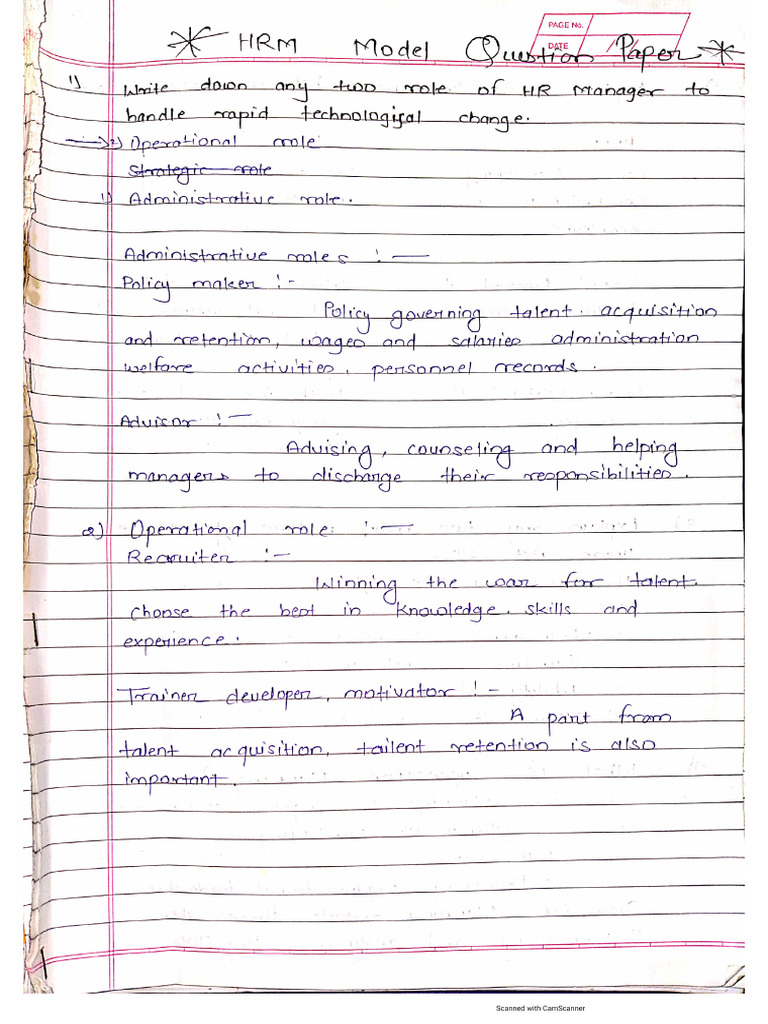 PAGE No.
DATE
* HRM Model Question Paper *
1) Write down any two role of HR Manager to
handle rapid technological change.
2) Operational role
Strategic role
1) Administrative role.
Administrative roles :-
Policy maker :-
Policy governing talent. acquisition
and retention, wages and salaries administration
welfare activities, personnel records.
Advisor :-
Advising, counseling and helping
managers to discharge their responsibilities.
2) Operational role :-
Recruiter :-
Winning the war for talent.
Choose the best in knowledge. skills and
experience.
Trainer developer, motivator :-
A part from
talent acquisition, tailent retention is also
important.
Scanned with CamScanner